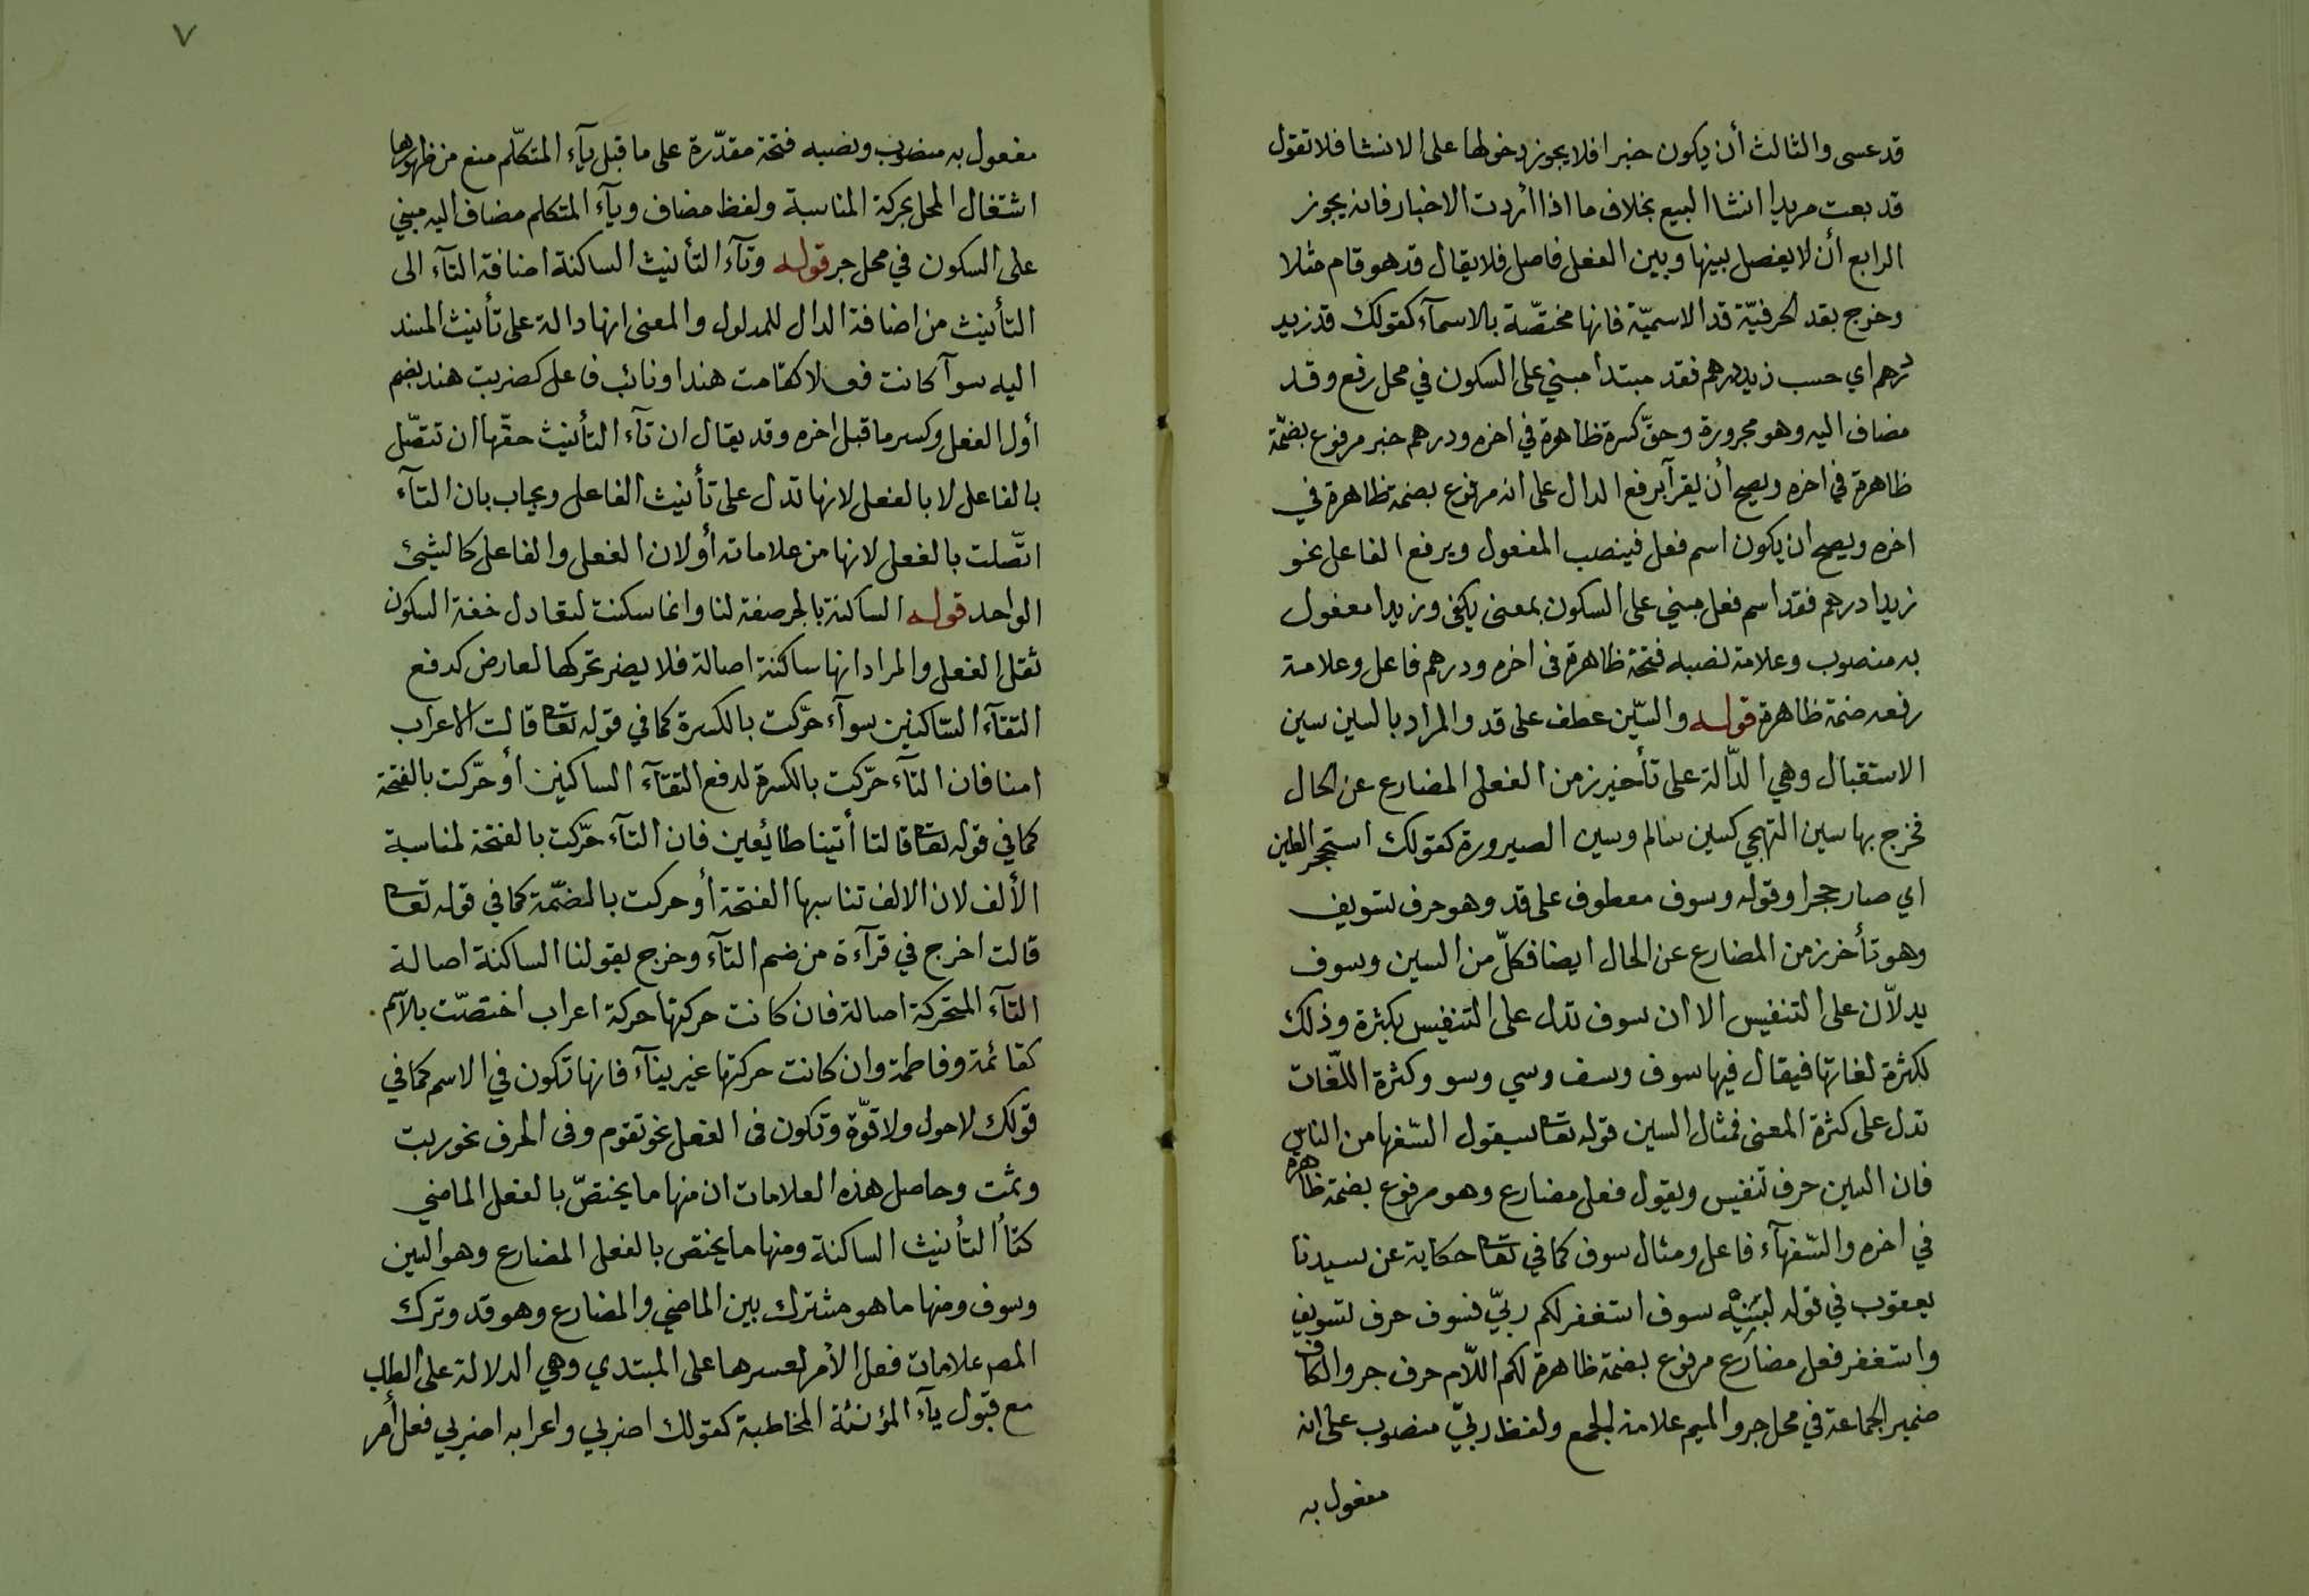 قد عسى والثالث أن يكون خبرا فلا يجوز دخولها على الانشا فلا تقول
قد بعت مريدا انشا البيع بخلاف ما اذا أردت الاخبار فانه يجوز
الرابع أن لا يفصل بينها وبين الفعل فاصل فلا يقال قد هو قام مثلا
وخرج بقد الحرفيّة قد الاسميّة فانها مختصّة بالاسمآء كقولك قد زيد
درهم اي حسب زيد درهم فقد مبتدا مبني على السكون في محل رفع وقد
مضاف اليه وهو مجرورة وحقّ كسرة ظاهرة في اخره ودرهم خبر مرفوع بضمّة
ظاهرة في اخره ويصح أن يقرآ برفع الدال على انه مرفوع بضمة ظاهرة في
اخره ويصح ان يكون اسم فعل فينصب المفعول ويرفع الفاعل نحو
زيدا درهم فقد اسم فعل مبني على السكون بمعنى يكفى وزيدا مفعول
به منصوب وعلامة نصبه فتحة ظاهرة فى اخره ودرهم فاعل وعلامة
رفعه ضمة ظاهرة قوله والسّين عطف على قد والمراد بالسين سين
الاستقبال وهي الدّالة على تأخير زمن الفعل المضارع عن الحال
فخرج بها سين التهجي كسين سالم وسين الصيرورة كقولك استحجر الطين
اي صار حجرا وقوله وسوف معطوف على قد وهو حرف تسويف
وهو تأخر زمن المضارع عن الحال ايضا فكلّ من السين وسوف
يدلّان على التنفيس الا ان سوف تدل على التنفيس بكثرة وذلك
لكثرة لغاتها فيقال فيها سوف وسف وسي وسو وكثرة اللّغات
تدل على كثرة المعنى فمثال السين قوله تعا سيقول السّفها من الناس
فان السين حرف تنفيس ويقول فعل مضارع وهو مرفوع بضمة ظاهرة
في اخره والسّفهآء فاعل ومثال سوف كما في تعا حكاية عن سيدنا
يعقوب في قوله لبنيه سوف استغفر لكم ربيّ فسوف حرف تسويف
واستغفر فعل مضارع مرفوع بضمة ظاهرة لكم اللّام حرف جر والكاف
ضمير الجماعة في محل جر والميم علامة لجمع ولفظ ربيّ منصوب على انه
مفعول به
٧
مفعول به منصوب ونصبه فتحة مقدّرة على ما قبل يآء المتكلّم منع من ظهورها
اشتغال المحل بحركة المناسبة ولفظ مضاف ويآء المتكلم مضاف اليه مبني
على السكون في محل جر قوله وتآء التأنيث الساكنة اضافة التآء الى
التأنيث من اضافة الدال للمدلول والمعنى انها دالة على تأنيث المسند
اليه سوآ كانت فعلا كقامت هندا ونائب فاعل كضربت هند بضم
أول الفعل وكسر ما قبل اخره وقد يقال ان تآء التأنيث حقّها ان تتصّل
بالفاعل لا بالفعل لانها تدل على تأنيث الفاعل ويجاب بان التآء
اتّصلت بالفعل لانها من علاماته أو لان الفعل والفاعل كالشيئ
الواحد قوله الساكنة بالجر صفة لنا وانما سكنت لتعادل خفة السكون
ثقل الفعل والمراد انها ساكنة اصالة فلا يضر تحركها لعارض كدفع
التقآء السّاكنين سوآء حرّكت بالكسرة كما في قوله تعا قالت الاعراب
امنا فان التآء حرّكت بالكسرة لدفع التقآء الساكنين أو حرّكت بالفتحة
كما في قوله تعا قالتا أتينا طائعين فان التآء حرّكت بالفتحة لمناسبة
الألف لان الالف تناسبها الفتحة أو حركت بالضمّة كما في قوله تعا
قالت اخرج في قرآءة من ضم التآء وخرج بقولنا الساكنة اصالة
التآء المتحركة اصالة فان كانت حركتها حركة اعراب اختصّت بالآسم
كقائمة وفاطمة وان كانت حركتها غير بنآء فانها تكون في الاسم كما في
قولك لا حول ولا قوّة وتكون فى الفعل نحو تقوم وفى الحرف نحو ربت
وثمت وحاصل هذه العلامات ان منها ما يختصّ بالفعل الماضي
كتأ التأنيث الساكنة ومنها ما يختص بالفعل المضارع وهو السين
وسوف ومنها ما هو مشترك بين الماضي والمضارع وهو قد وترك
المصـ علامات فعل الأمر لعسرها على المبتدي وهي الدلالة على الطلب
مع قبول يآء المؤنثة المخاطبة كقولك اضربي واعرابه اضربي فعل أمر